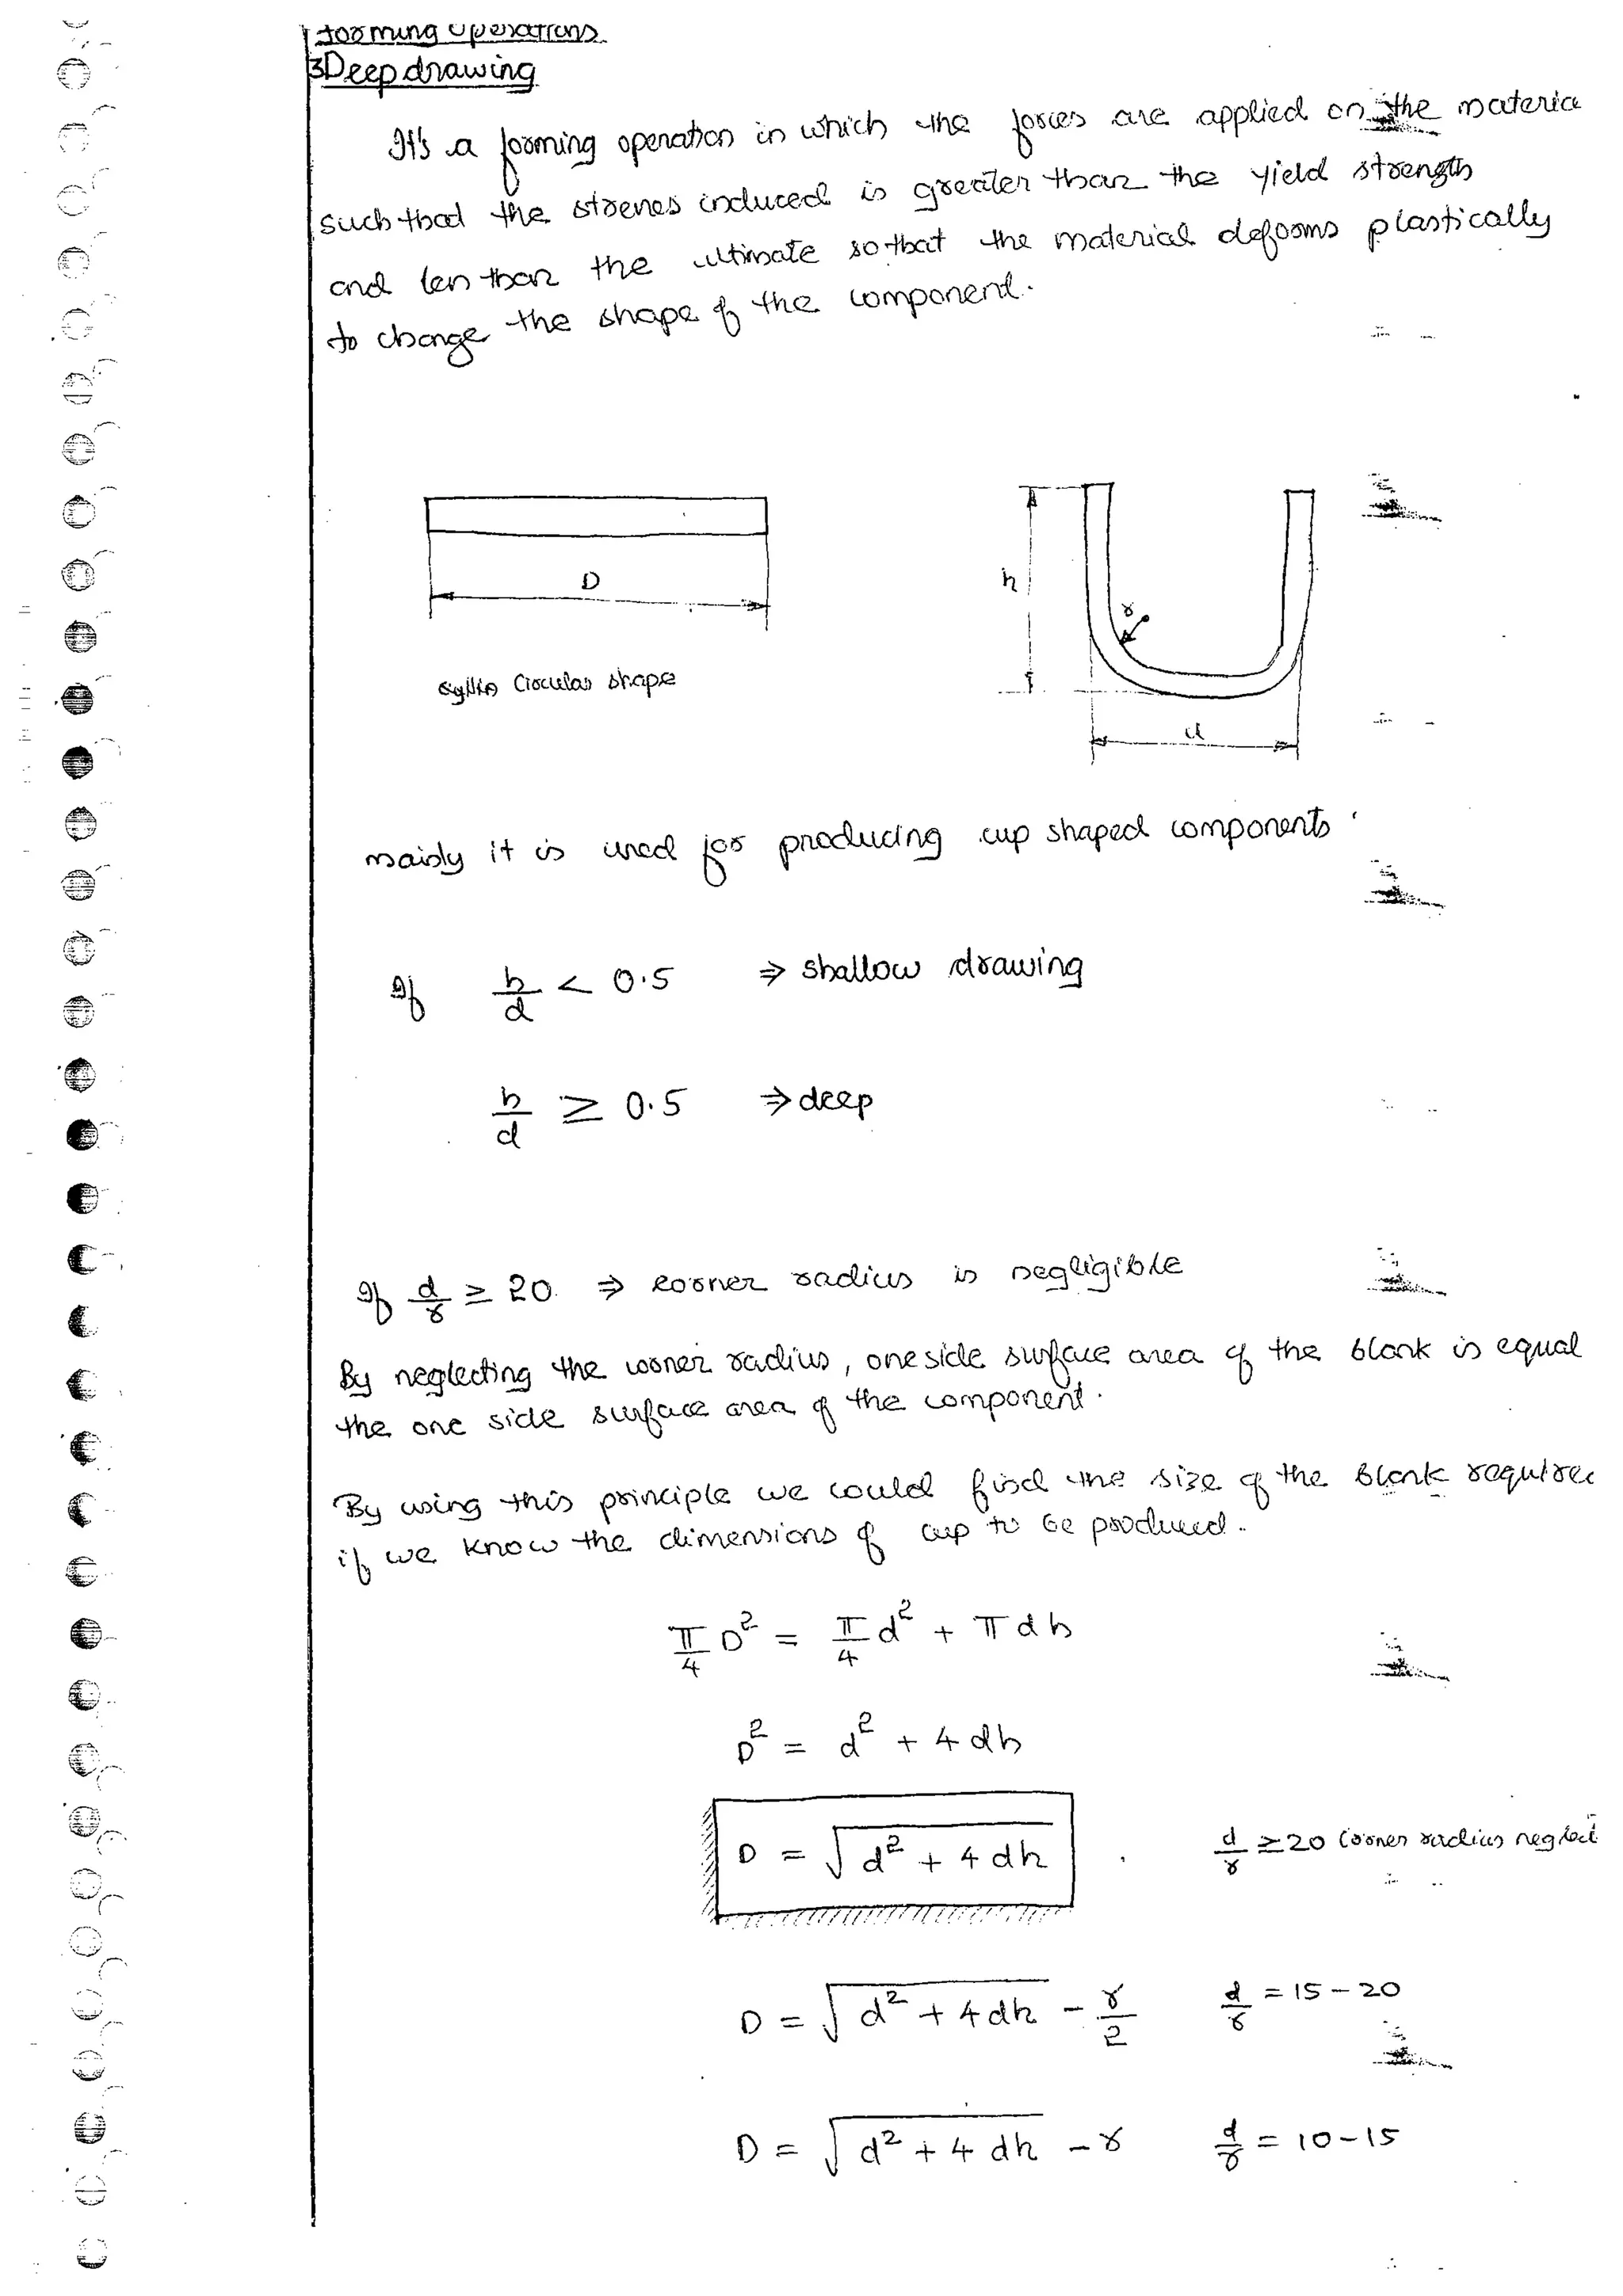 forming operations
3Deep drawing
It's a forming operation in which the forces are applied on the materia
such that the stresses induced is greater than the yield strength
and less than the ultimate so that the material deforms plastically
to change the shape of the component.
D
h
r
d
Circular shape
mainly it is used for producing cup shaped components
If h/d < 0.5 ⇒ shallow drawing
h/d ≥ 0.5 ⇒ deep
If d/r ≥ 20 ⇒ corner radius is negligible
By neglecting the corner radius, one side surface area of the blank is equal
the one side surface area of the component.
By using this principle we could find the size of the blank require
if we know the dimensions of cup to be produced.
π/4 D² = π/4 d² + π d h
D² = d² + 4 d h
D = √(d² + 4 d h) d/r ≥ 20 Corner radius neglect
D = √(d² + 4 d h) - r/2 d/r = 15 - 20
D = √(d² + 4 d h) - r d/r = 10 - 15